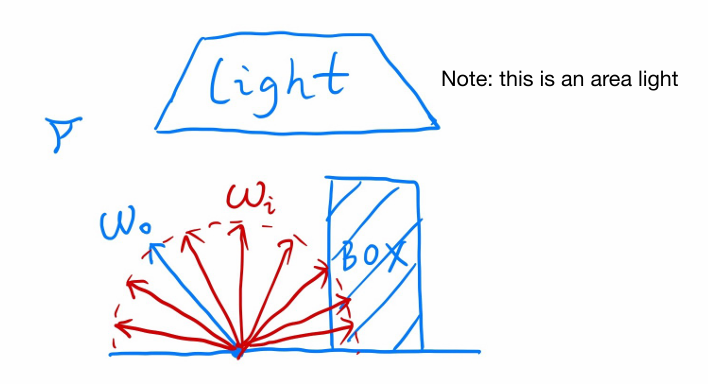 Light
Note: this is an area light
ωi
ωo
BOX